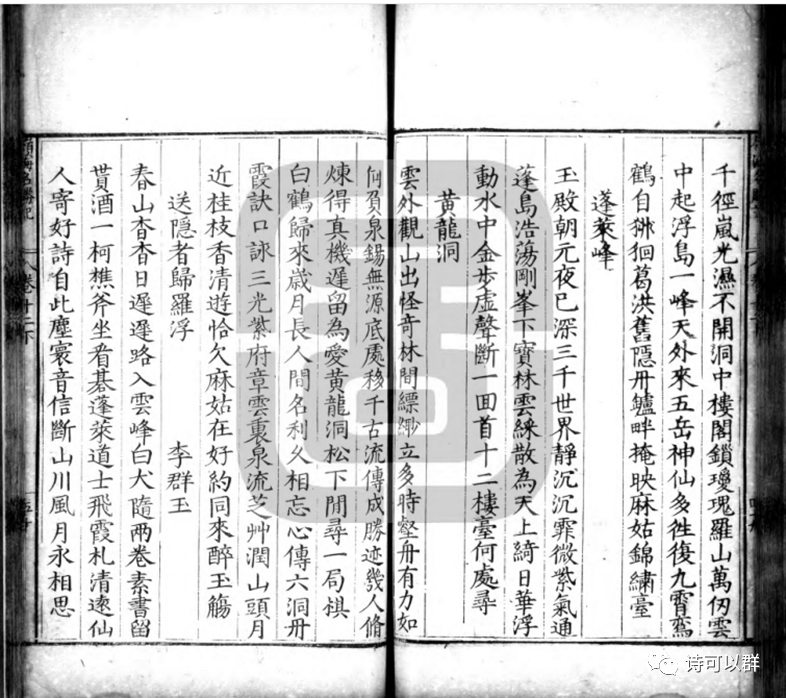 千徑嵐光濕不開洞中樓閣鎖瓊瑰羅山萬仞雲
中起浮島一峰天外來五岳神仙多徃復九霄鸞
鶴自徘徊葛洪舊隱丹鑪畔掩映麻姑錦繡臺
蓬萊峰
玉殿朝元夜已深三千世界靜沉沉霏微紫氣通
蓬島浩蕩剛峯下寶林雲綵散為天上綺日華浮
動水中金步虛聲斷一回首十二樓臺何處尋
黄龍洞
雲外觀山出怪竒林間縹緲立多時壑舟有力如
何負泉錫無源底處移千古流傳成勝迹幾人脩
煉得真機遲留為愛黄龍洞松下閒尋一局棋
白鶴歸來歲月長人間名利久相忘心傳六洞丹
霞訣口詠三光紫府章雲裏泉流芝艸潤山頭月
近桂枝香清遊恰欠麻姑在好約同來醉玉觴
送隱者歸羅浮 李群玉
春山杳杳日遲遲路入雲峰白犬隨兩卷素書留
貰酒一柯樵斧坐看碁蓬萊道士飛霞札清遠仙
人寄好詩自此塵寰音信斷山川風月永相思
卷十二下
诗可以群